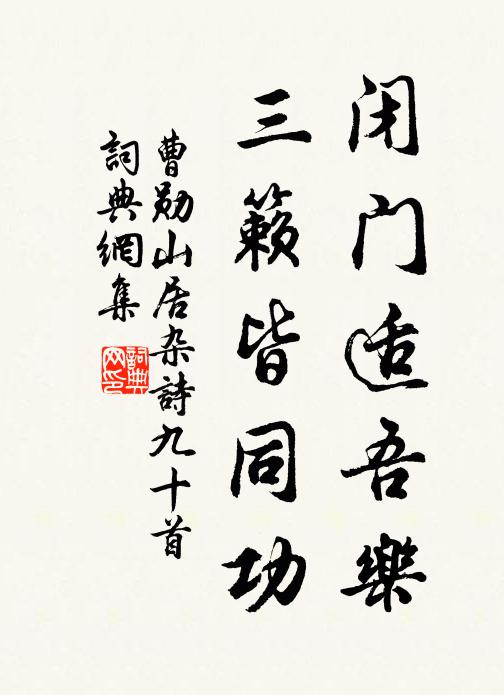 闭门适吾樂
三籟皆同功
曹勋山居杂詩九十首
詞典網集
詞典
网印